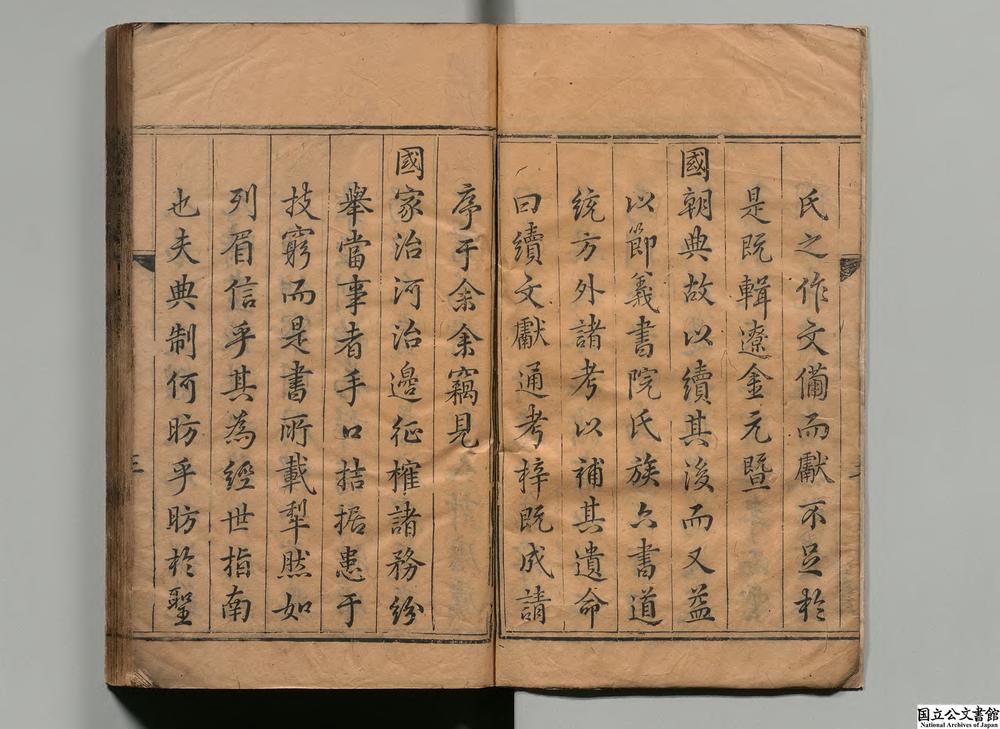 氏之作文備而獻不足於
是既輯遼金元暨
國朝典故以續其後而又益
以節義書院氏族六書道
統方外諸考以補其遺命
曰續文獻通考梓既成請
序于余余竊見
國家治河治邊征榷諸務紛
舉當事者手口拮据患于
技窮而是書所載犁然如
列眉信乎其為經世指南
也夫典制何昉乎昉於聖
国立公文書館
National Archives of Japan